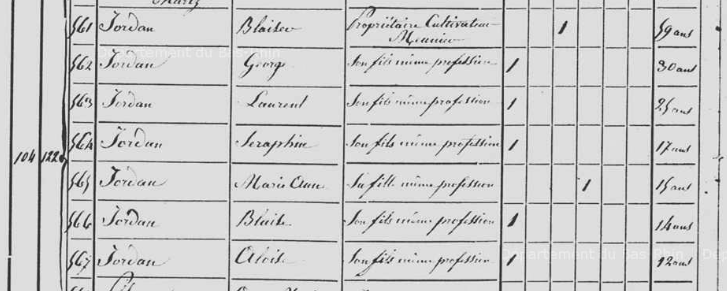 561 Jordan Blaise Propriétaire Cultivateur Meunier 1 59 ans
562 Jordan George Son fils même profession 1 30 ans
563 Jordan Laurent Son fils même profession 1 25 ans
104 122 564 Jordan Seraphin Son fils même profession 1 17 ans
565 Jordan Marie Anne Sa fille même profession 1 15 ans
566 Jordan Blaise Son fils même profession 1 14 ans
567 Jordan Aloise Son fils même profession 1 12 ans